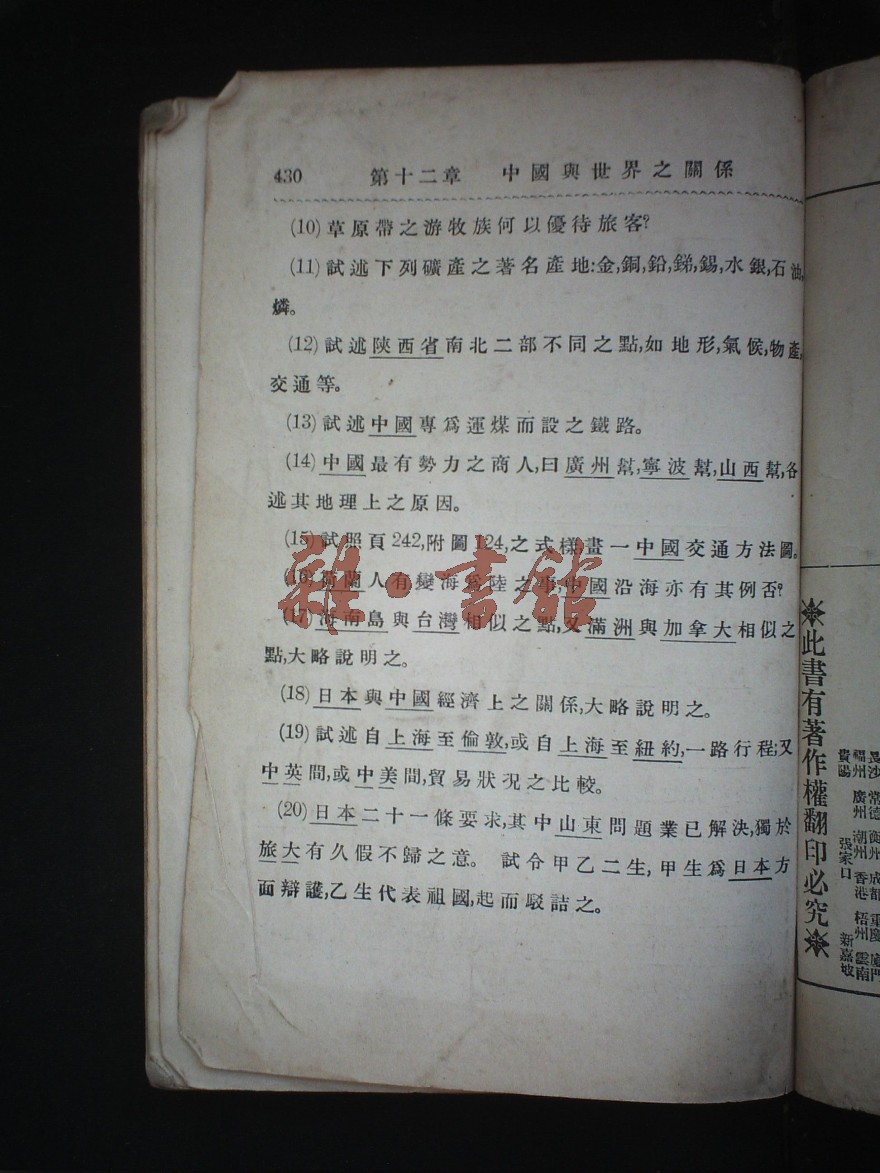 430 第十二章 中國與世界之關係
(10)草原帶之游牧族何以優待旅客?
(11)試述下列礦產之著名產地:金,銅,鉛,銻,錫,水銀,石油,
燐。
(12)試述陝西省南北二部不同之點,如地形,氣候,物產,
交通等。
(13)試述中國專爲運煤而設之鐵路。
(14)中國最有勢力之商人,曰廣州幫,寧波幫,山西幫,各
述其地理上之原因。
(15)試照頁242,附圖124,之式樣,畫一中國交通方法圖。
(16)荷蘭人有變海爲陸之事,中國沿海亦有其例否?
(17)海南島與台灣相似之點,又滿洲與加拿大相似之
點,大略說明之。
(18)日本與中國經濟上之關係,大略說明之。
(19)試述自上海至倫敦,或自上海至紐約,一路行程;又
中英間,或中美間,貿易狀況之比較。
(20)日本二十一條要求,其中山東問題業已解決,獨於
旅大有久假不歸之意。 試令甲乙二生,甲生爲日本方
面辯護,乙生代表祖國,起而駁詰之。
雜·書館
此書有著作權翻印必究
常德 成都 重慶 廈門
福州 廣州 潮州 香港 梧州 雲南
貴陽 張家口 新嘉坡